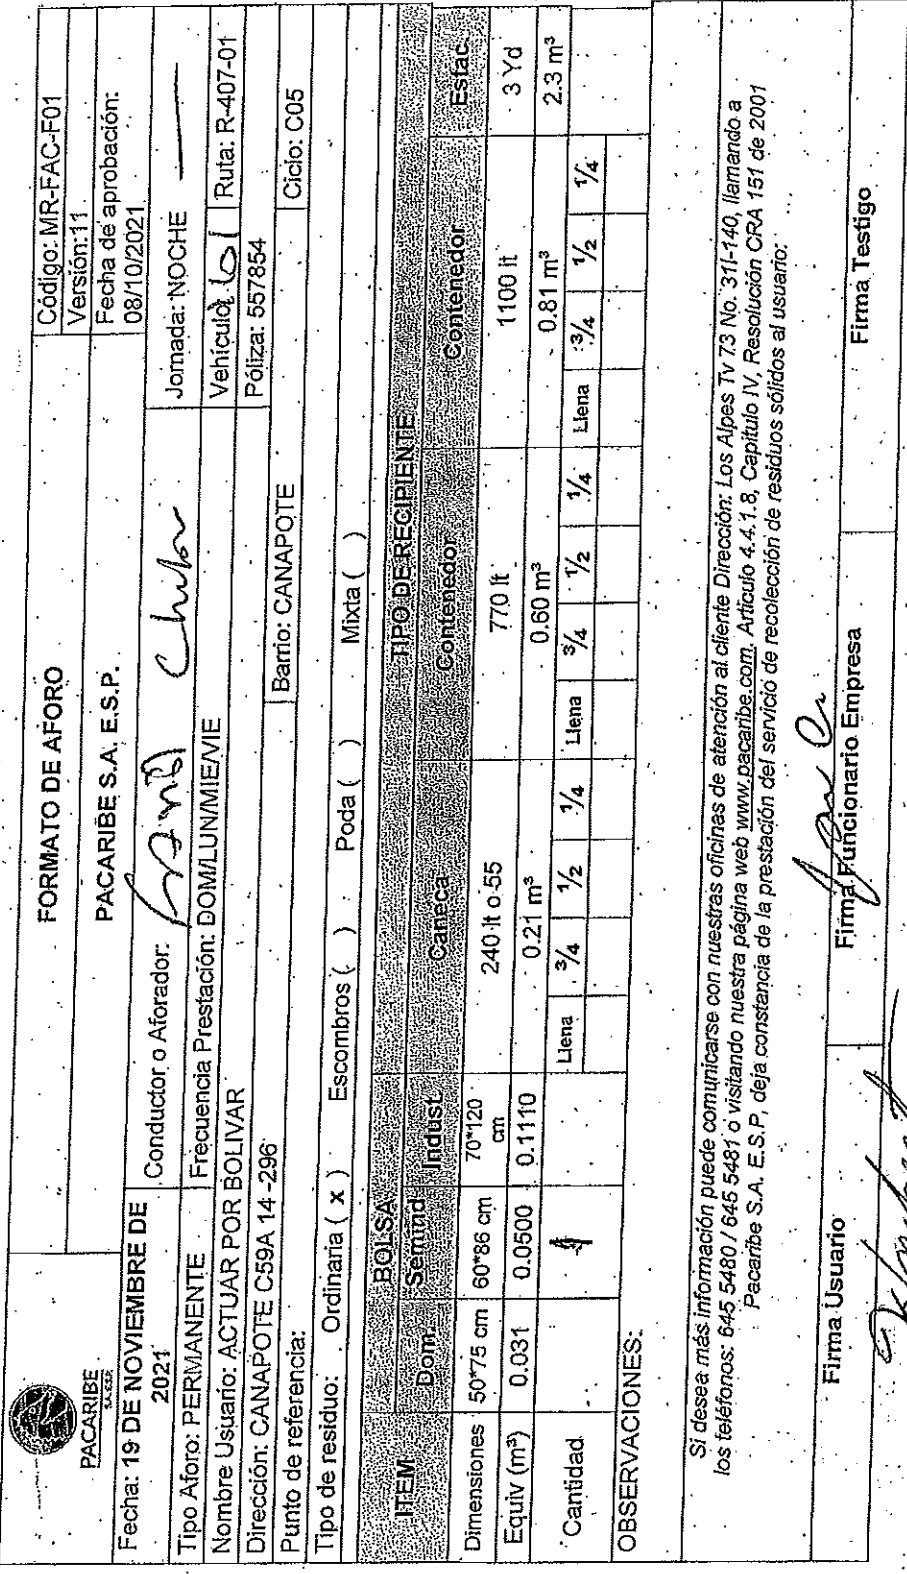 PACARIBE
S.A. E.S.P.
FORMATO DE AFORO
PACARIBE S.A. E.S.P.
Código: MR-FAC-F01
Versión:11
Fecha de aprobación:
08/10/2021
Fecha: 19 DE NOVIEMBRE DE
2021
Conductor o Aforador:
Jornada: NOCHE
Tipo Aforo: PERMANENTE
Frecuencia Prestación: DOM/LUN/MIE/VIE
Vehículo
Ruta: R-407-01
Nombre Usuario: ACTUAR POR BOLIVAR
Póliza: 557854
Dirección: CANAPOTE C59A 14 -296
Barrio: CANAPOTE
Ciclo: C05
Punto de referencia:
Tipo de residuo: Ordinaria ( x ) Escombros ( ) Poda ( ) Mixta ( )
ITEM BOLSA TIPO DE RECIPIENTE
Dom. Semind Indust. Caneca Contenedor Contenedor Estac.
Dimensiones 50*75 cm 60*86 cm 70*120 cm 240 lt o 55 770 lt 1100 lt 3 Yd
Equiv (m³) 0.031 0.0500 0.1110 0.21 m³ 0.60 m³ 0.81 m³ 2.3 m³
Cantidad Llena 3/4 1/2 1/4 Llena 3/4 1/2 1/4 Llena 3/4 1/2 1/4
OBSERVACIONES:
Si desea más información puede comunicarse con nuestras oficinas de atención al cliente Dirección: Los Alpes Tv 73 No. 31I-140, llamando a
los teléfonos: 645 5480 / 645 5481 o visitando nuestra página web www.pacaribe.com. Articulo 4.4.1.8, Capitulo IV, Resolución CRA 151 de 2001
Pacaribe S.A. E.S.P, deja constancia de la prestación del servicio de recolección de residuos sólidos al usuario:
Firma Usuario
Firma Funcionario Empresa
Firma Testigo